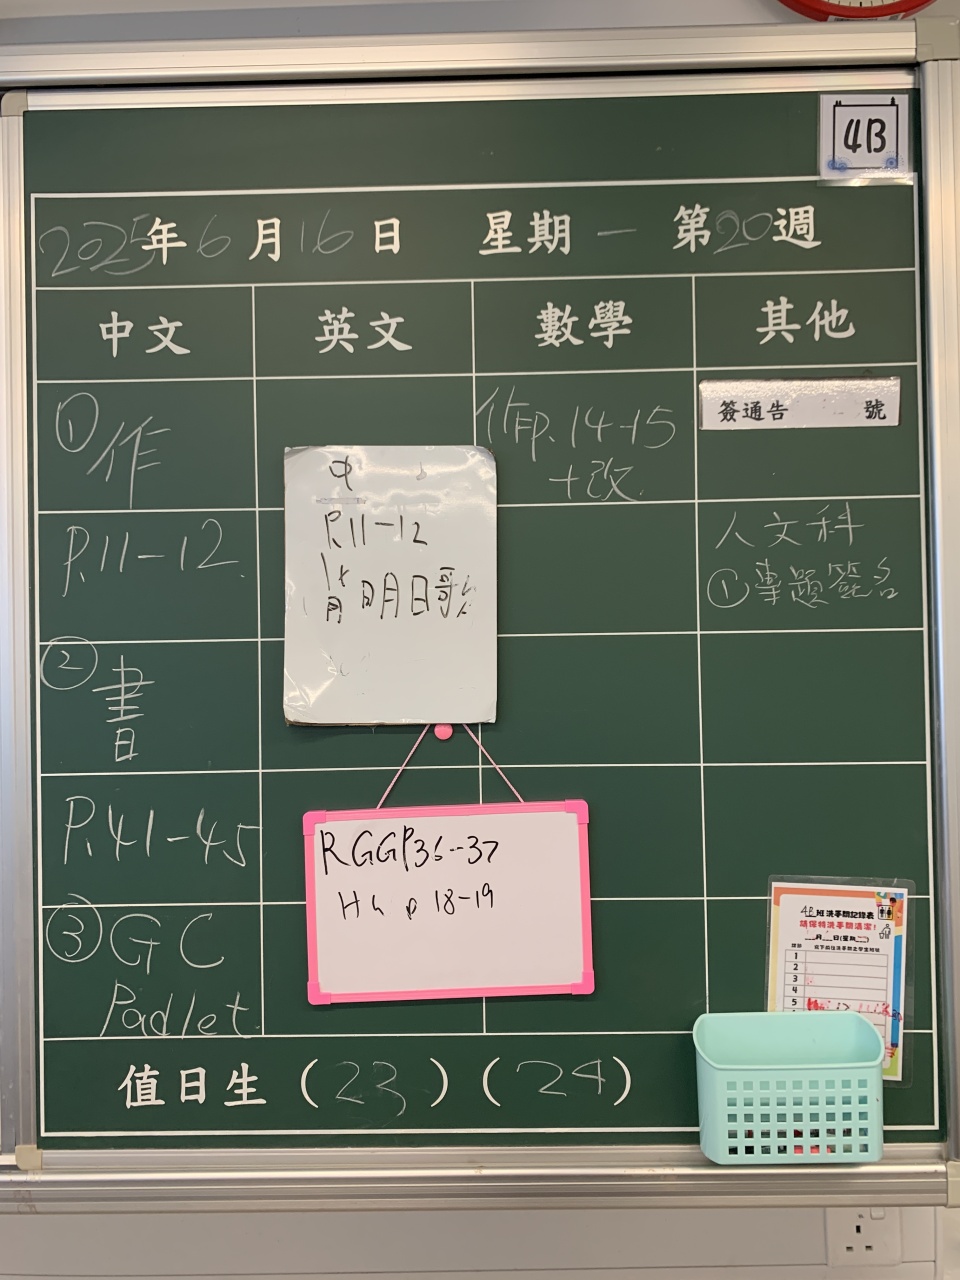 4B
2025年6月16日 星期一 第20週
中文 英文 數學 其他
①作
P.11-12
②書
P.41-45
③GC
Padlet
中
P.11-12
背明月日歌
RGGP36-37
p 18-19
作p.14-15
+改
簽通告 號
人文科
①專題簽名
4B班洗手間記錄表
請保持洗手間清潔!
月 日(星期
1
2
3
4
5
值日生(23)(24)